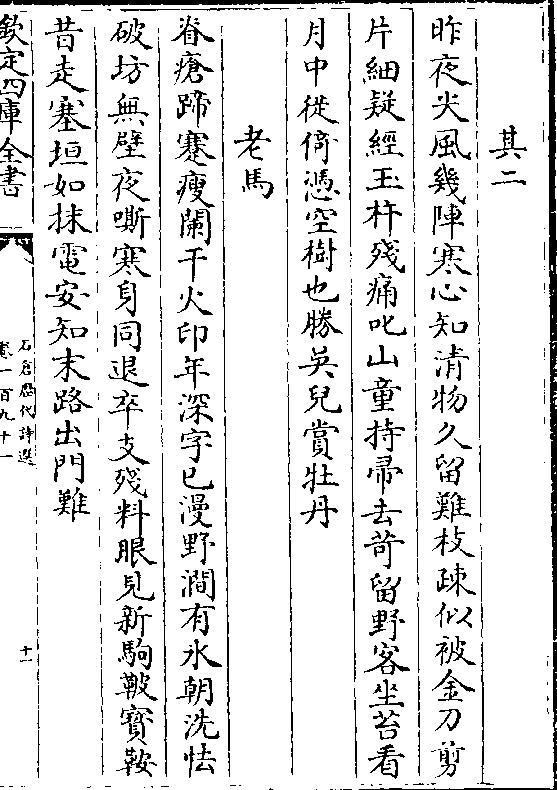 其二
昨夜尖風幾陣寒心知清物久留難枝疎似被金刀剪
片細疑經玉杵殘痛叱山童持帚去苛留野客坐苔看
月中徙倚憑空樹也勝英兒賞牡丹
老馬
脊瘡蹄蹇瘦闌干火印年深字已漫野澗有氷朝洗怯
破坊無壁夜嘶寒身同退卒支殘料眼見新駒鞁寳鞍
昔走塞垣如抹電安知末路出門難
欽定四庫全書
石倉歷代詩選
卷一百九十一
十一